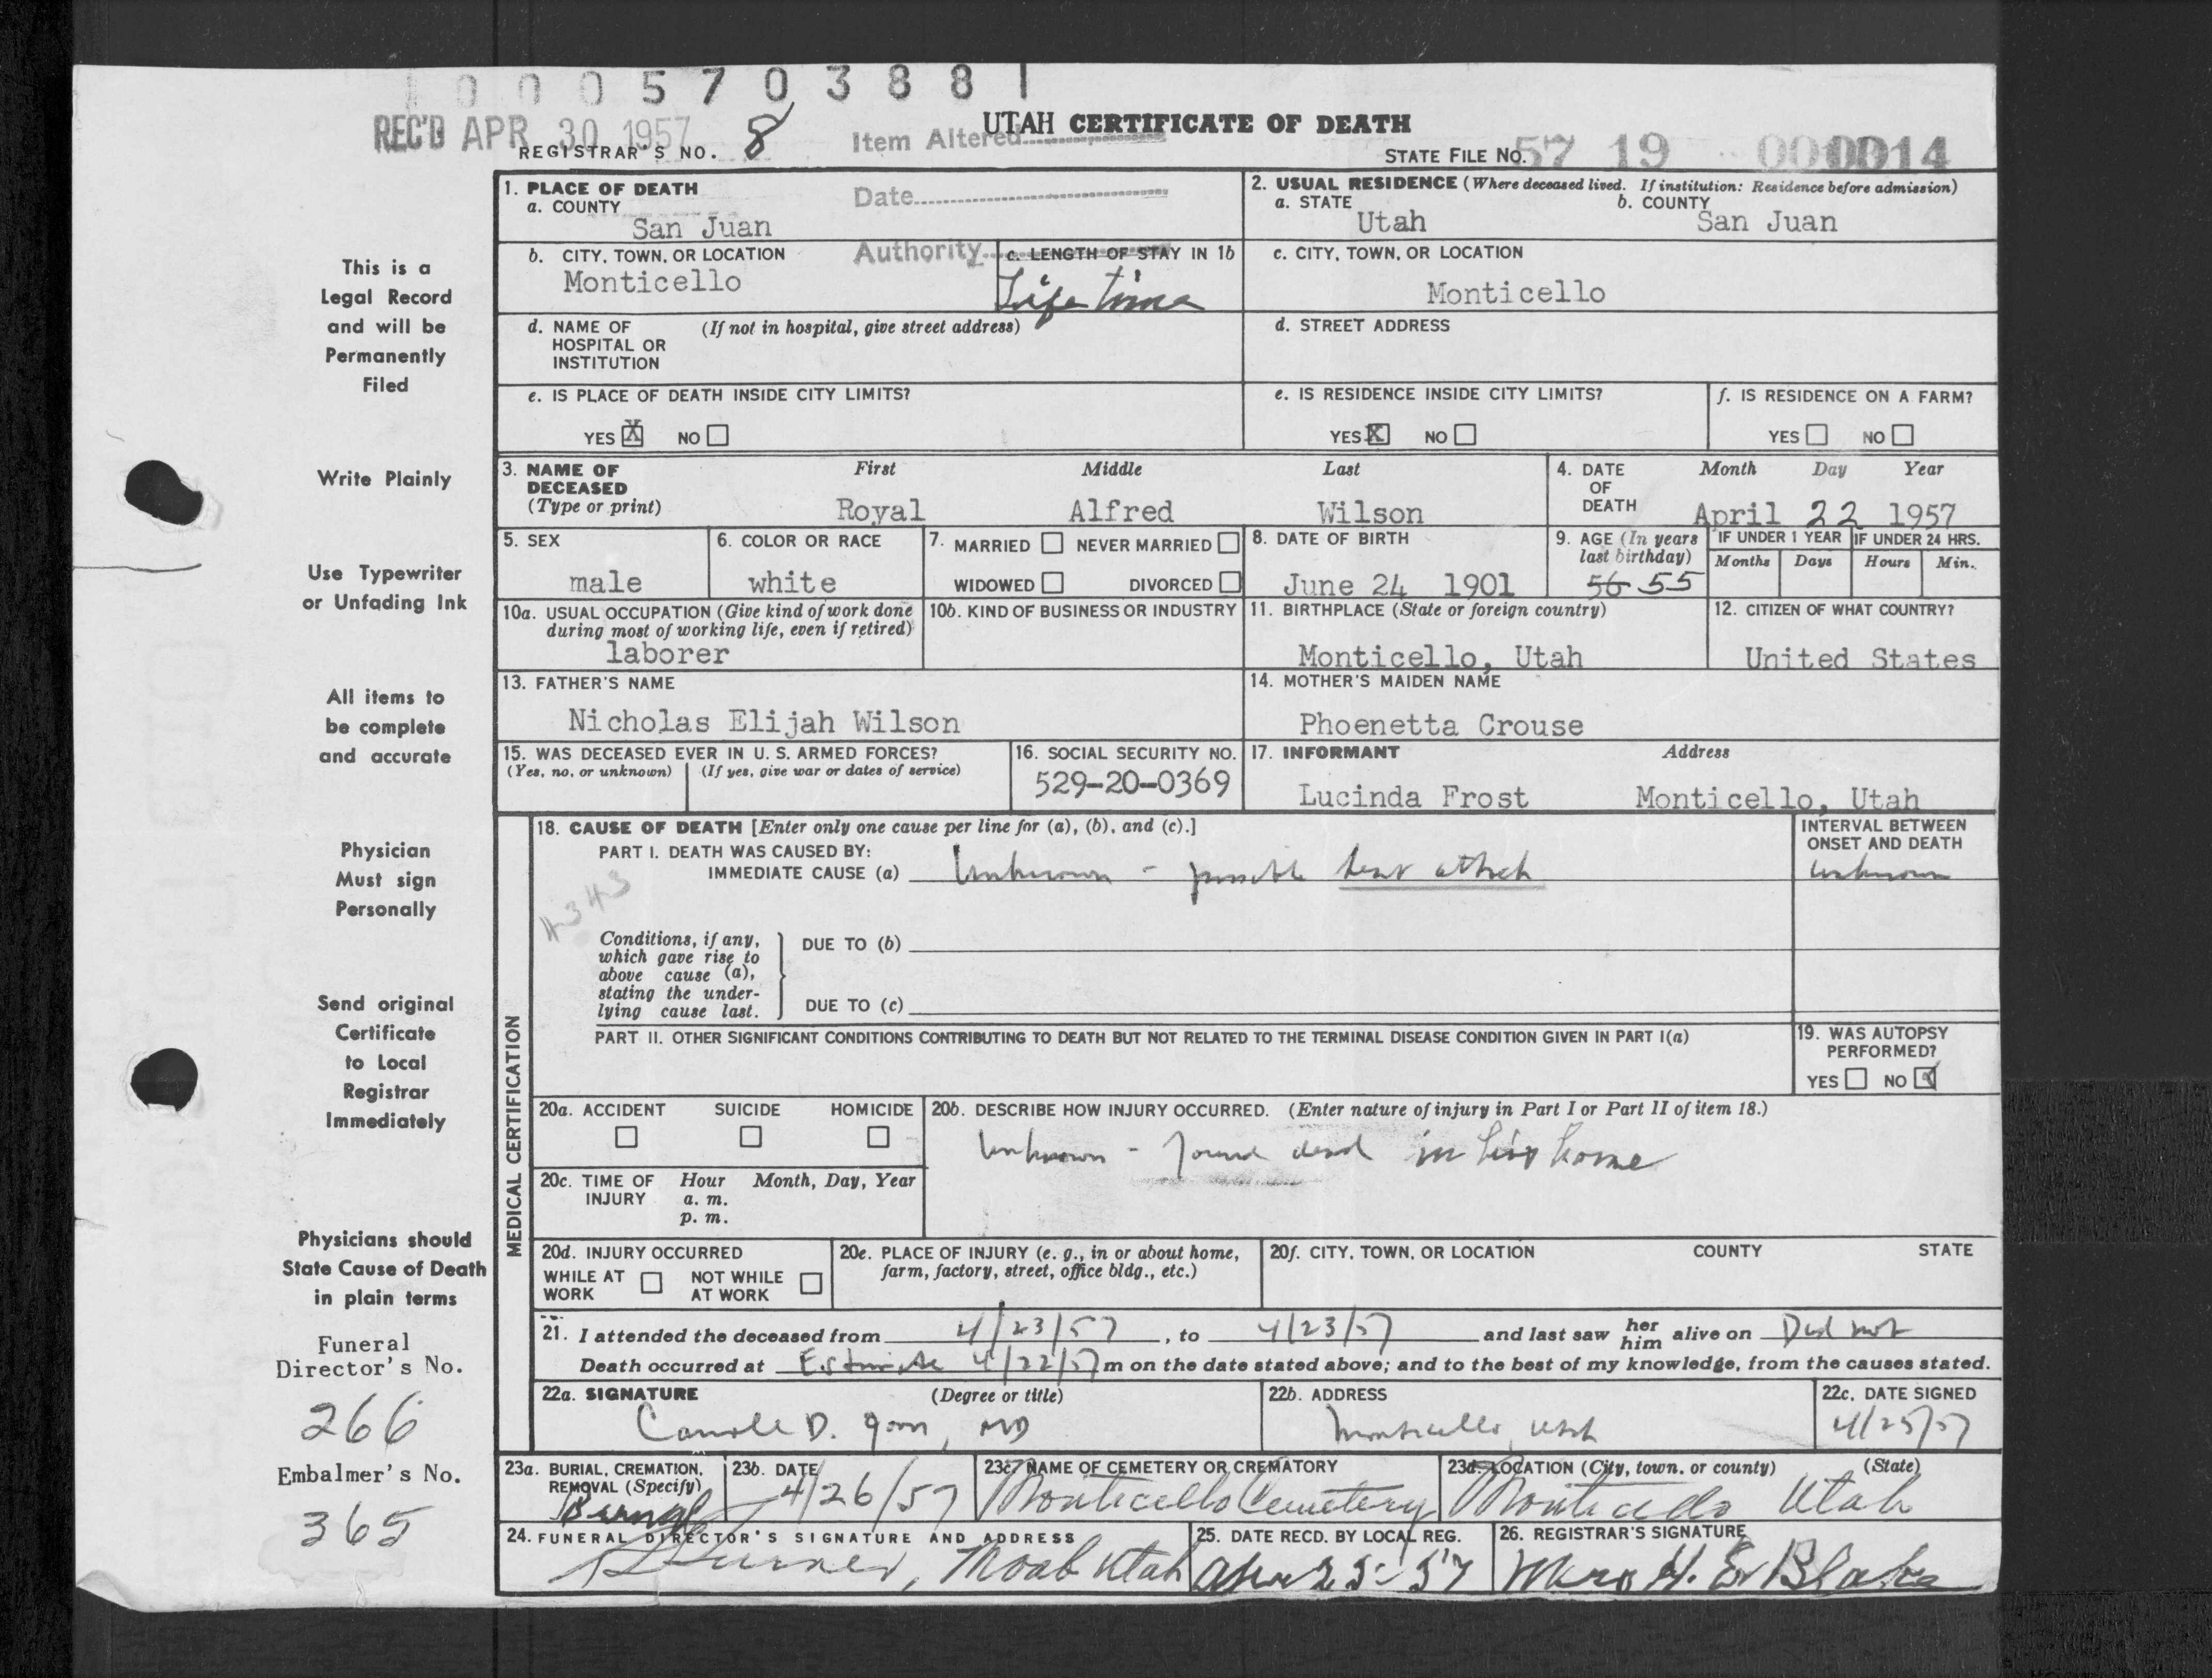 1 0 0 0 5 7 0 3 8 8 1
REC'D APR 30 1957
UTAH CERTIFICATE OF DEATH
REGISTRAR'S NO. 8
Item Altered
STATE FILE NO. 57 19 000014
1. PLACE OF DEATH
a. COUNTY
San Juan
Date
2. USUAL RESIDENCE (Where deceased lived. If institution: Residence before admission)
a. STATE
Utah
b. COUNTY
San Juan
b. CITY, TOWN, OR LOCATION
Monticello
Authority
c. LENGTH OF STAY IN 1b
Life time
c. CITY, TOWN, OR LOCATION
Monticello
d. NAME OF HOSPITAL OR INSTITUTION
(If not in hospital, give street address)
d. STREET ADDRESS
e. IS PLACE OF DEATH INSIDE CITY LIMITS?
YES X NO
e. IS RESIDENCE INSIDE CITY LIMITS?
YES X NO
f. IS RESIDENCE ON A FARM?
YES NO
3. NAME OF DECEASED
(Type or print)
First Middle Last
Royal Alfred Wilson
4. DATE OF DEATH
Month Day Year
April 22 1957
5. SEX
male
6. COLOR OR RACE
white
7. MARRIED NEVER MARRIED
WIDOWED DIVORCED
8. DATE OF BIRTH
June 24 1901
9. AGE (In years last birthday)
56 55
IF UNDER 1 YEAR
Months Days
IF UNDER 24 HRS.
Hours Min.
10a. USUAL OCCUPATION (Give kind of work done during most of working life, even if retired)
laborer
10b. KIND OF BUSINESS OR INDUSTRY
11. BIRTHPLACE (State or foreign country)
Monticello, Utah
12. CITIZEN OF WHAT COUNTRY?
United States
13. FATHER'S NAME
Nicholas Elijah Wilson
14. MOTHER'S MAIDEN NAME
Phoenetta Crouse
15. WAS DECEASED EVER IN U. S. ARMED FORCES?
(Yes, no, or unknown) (If yes, give war or dates of service)
16. SOCIAL SECURITY NO.
529-20-0369
17. INFORMANT Address
Lucinda Frost Monticello, Utah
MEDICAL CERTIFICATION
18. CAUSE OF DEATH [Enter only one cause per line for (a), (b), and (c).]
PART I. DEATH WAS CAUSED BY:
IMMEDIATE CAUSE (a) Unknown - possible heart attack
INTERVAL BETWEEN ONSET AND DEATH
unknown
4343
Conditions, if any, which gave rise to above cause (a), stating the underlying cause last.
DUE TO (b)
DUE TO (c)
PART II. OTHER SIGNIFICANT CONDITIONS CONTRIBUTING TO DEATH BUT NOT RELATED TO THE TERMINAL DISEASE CONDITION GIVEN IN PART I(a)
19. WAS AUTOPSY PERFORMED?
YES NO
20a. ACCIDENT SUICIDE HOMICIDE
20b. DESCRIBE HOW INJURY OCCURRED. (Enter nature of injury in Part I or Part II of item 18.)
Unknown - found dead in his home
20c. TIME OF INJURY
Hour Month, Day, Year
a. m.
p. m.
20d. INJURY OCCURRED
WHILE AT WORK NOT WHILE AT WORK
20e. PLACE OF INJURY (e. g., in or about home, farm, factory, street, office bldg., etc.)
20f. CITY, TOWN, OR LOCATION COUNTY STATE
21. I attended the deceased from 4/23/57, to 4/23/57 and last saw her him alive on Did not
Death occurred at Estimate 4/22/57 m on the date stated above; and to the best of my knowledge, from the causes stated.
22a. SIGNATURE (Degree or title)
D. MD
22b. ADDRESS
Monticello, Utah
22c. DATE SIGNED
4/25/57
23a. BURIAL, CREMATION, REMOVAL (Specify)
Burial
23b. DATE
4/26/57
23c. NAME OF CEMETERY OR CREMATORY
Monticello Cemetery
23d. LOCATION (City, town, or county) (State)
Monticello Utah
24. FUNERAL DIRECTOR'S SIGNATURE AND ADDRESS
Moab Utah
25. DATE RECD. BY LOCAL REG.
26. REGISTRAR'S SIGNATURE
This is a
Legal Record
and will be
Permanently
Filed
Write Plainly
Use Typewriter
or Unfading Ink
All items to
be complete
and accurate
Physician
Must sign
Personally
Send original
Certificate
to Local
Registrar
Immediately
Physicians should
State Cause of Death
in plain terms
Funeral
Director's No.
266
Embalmer's No.
365